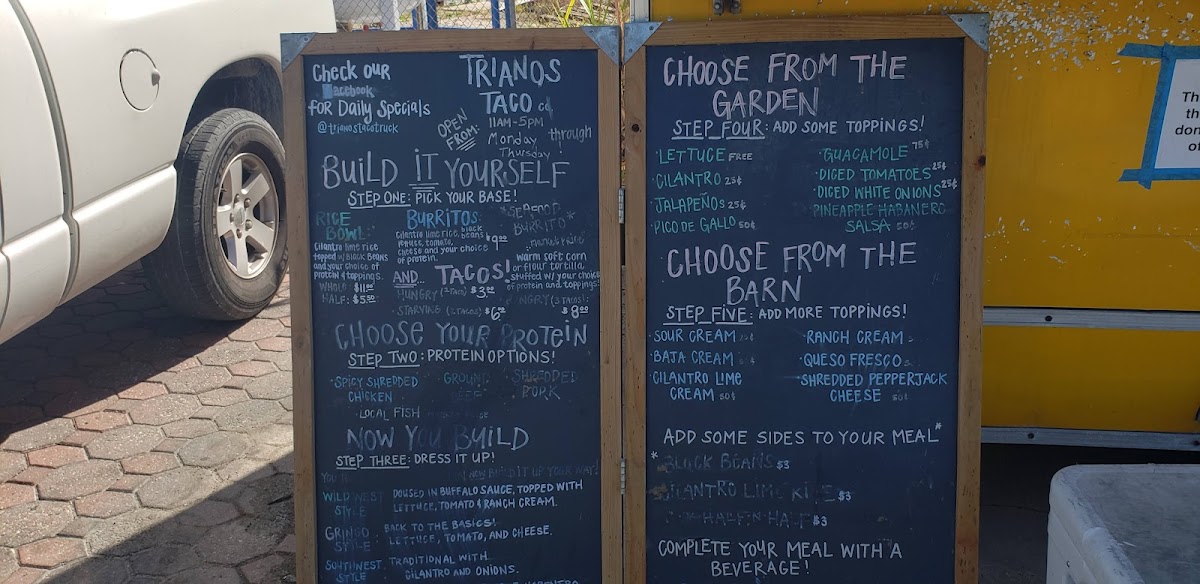 Check our
Facebook
for Daily Specials
@trianostacotruck
TRIANOS
TACO co.
OPEN FROM:
11AM-5PM
Monday through
Thursday!
BUILD IT YOURSELF
STEP ONE: PICK YOUR BASE!
RICE
BOWL:
Cilantro lime rice
topped w/ Black Beans
and your choice of
protein & toppings.
WHOLE $11.00
HALF: $5.50
BURRITOS:
Cilantro lime rice, black beans
lettuce, tomato,
cheese and your choice
of protein.
$9.00
*SEAFOOD
BURRITO*
market price
AND... TACOS!
warm soft corn
or flour tortilla
stuffed w/ your choice
of protein and toppings!
HUNGRY (1 TACO) $3.00
STARVING (2 TACOS) $6.00
(3 TACOS): $8.00
CHOOSE YOUR PROTEIN
STEP TWO: PROTEIN OPTIONS!
·SPICY SHREDDED
CHICKEN
·GROUND
BEEF
·SHREDDED
PORK
·LOCAL FISH
NOW YOU BUILD
STEP THREE: DRESS IT UP!
NOW BUILD IT UP YOUR WAY!
WILD WEST
STYLE
DOUSED IN BUFFALO SAUCE, TOPPED WITH
LETTUCE, TOMATO & RANCH CREAM.
GRINGO
STYLE
BACK TO THE BASICS!
LETTUCE, TOMATO, AND CHEESE.
SOUTHWEST
STYLE
TRADITIONAL WITH
CILANTRO AND ONIONS.
CHOOSE FROM THE
GARDEN
STEP FOUR: ADD SOME TOPPINGS!
·LETTUCE FREE
·CILANTRO 25¢
·JALAPEÑOS 25¢
·PICO DE GALLO 50¢
·GUACAMOLE 75¢
·DICED TOMATOES 25¢
·DICED WHITE ONIONS 25¢
·PINEAPPLE HABANERO
SALSA 50¢
CHOOSE FROM THE
BARN
STEP FIVE: ADD MORE TOPPINGS!
·SOUR CREAM
·BAJA CREAM
·CILANTRO LIME
CREAM 50¢
·RANCH CREAM
·QUESO FRESCO
·SHREDDED PEPPERJACK
CHEESE 50¢
ADD SOME SIDES TO YOUR MEAL*
*BLACK BEANS $3
CILANTRO LIME RICE $3
HALF N HALF $3
COMPLETE YOUR MEAL WITH A
BEVERAGE!
Th
th
don
of